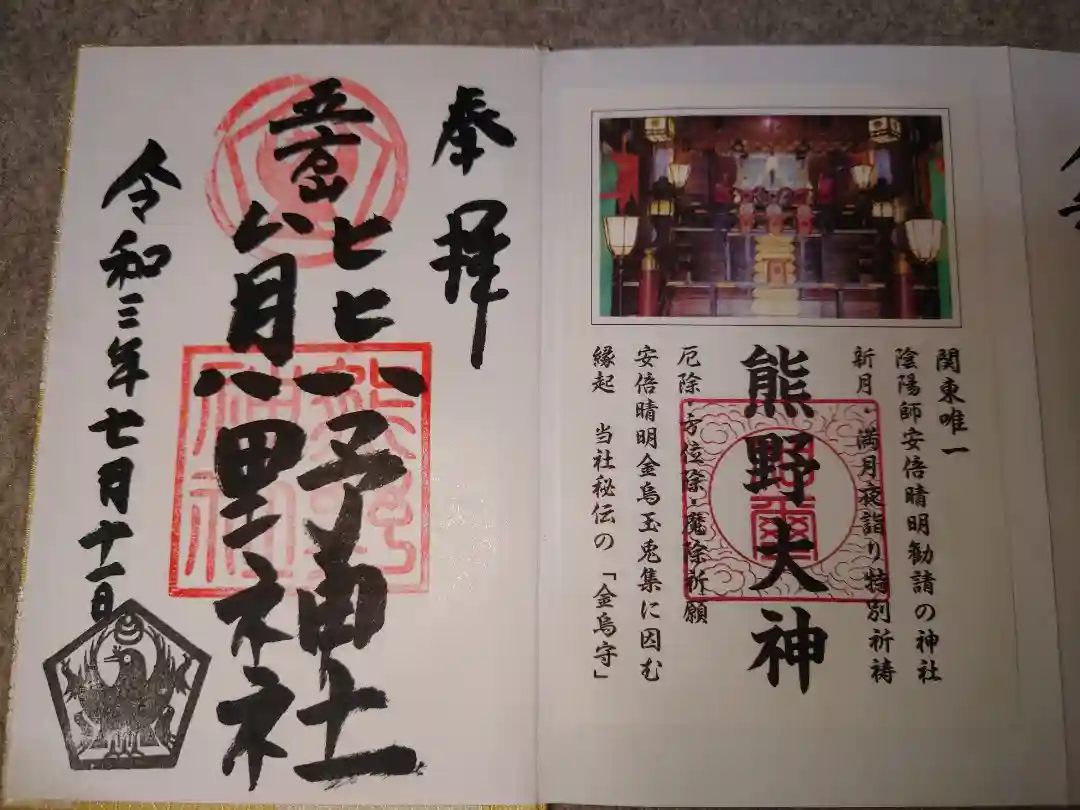 関東唯一
陰陽師安倍晴明勧請の神社
新月・満月夜詣り特別祈祷
熊野大神
厄除・方位除・魔除祈願
安倍晴明金烏玉兎集に因む
縁起 当社秘伝の「金烏守」
奉拝
五方山
熊野神社
熊野神社
令和三年七月十一日